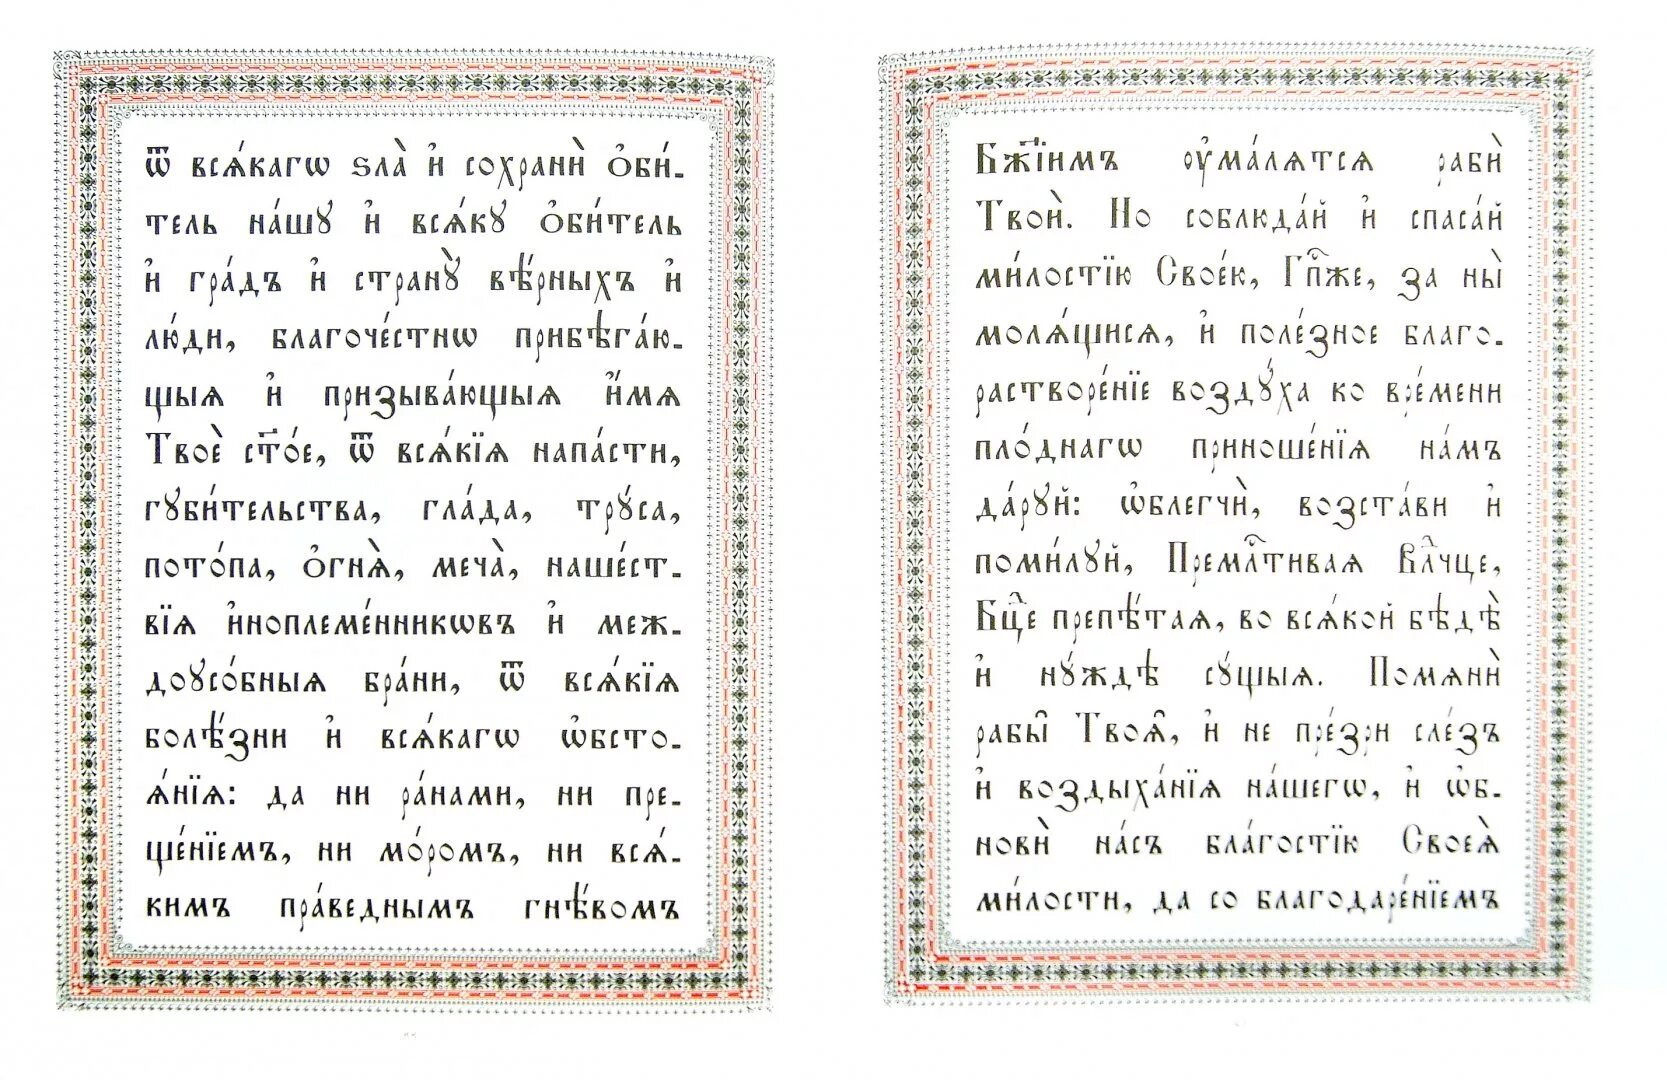 ѿ всѧ́кагѡ ѕла̀ и҆ сохранѝ ѻ҆би́-
тель на́шꙋ и҆ всѧ́кꙋ ѻ҆би́тель
и҆ гра́дъ и҆ странꙋ̀ вѣ́рныхъ и҆
лю́ди, благоче́стнѡ прибѣга́ю-
щыѧ и҆ призыва́ющыѧ и҆́мѧ
Твоѐ ст҃о́е, ѿ всѧ́кїѧ напа́сти,
гꙋби́тельства, гла́да, трꙋ́са,
пото́па, ѻ҆гнѧ̀, меча̀, наше́ст-
вїѧ и҆ноплеме́нникѡвъ и҆ меж-
доусо́бныѧ бра́ни, ѿ всѧ́кїѧ
болѣ́зни и҆ всѧ́кагѡ ѡ҆бсто-
ѧ́нїѧ: да ни ра́нами, ни пре-
ще́нїемъ, ни мо́ромъ, ни всѧ́-
кимъ пра́веднымъ гнѣ́вомъ
Бж҃їимъ оу҆ма́лѧтсѧ рабѝ
Твоѝ. Но соблюда́й и҆ спаса́й
ми́лостїю Свое́ю, Гпⷭ҇же, за ны̀
молѧ́щисѧ, и҆ поле́зное благо-
растворе́нїе воздꙋ́ха ко вре́мени
пло́днагѡ приноше́нїѧ на́мъ
да́рꙋй: ѡ҆блегчѝ, возста́ви и҆
поми́лꙋй, Премлⷭ҇тиваѧ Влⷣчце,
Бцⷣе препѣ́таѧ, во всѧ́кой бѣдѣ̀
и҆ нꙋ́ждѣ сꙋ́щыѧ. Помѧнѝ
рабы̑ Твоѧ̑, и҆ не пре́зри сле́зъ
и҆ воздыха́нїѧ на́шегѡ, и҆ ѡ҆б-
новѝ на́съ бла́гостїю Своеѧ̀
ми́лости, да со благодаре́нїемъ